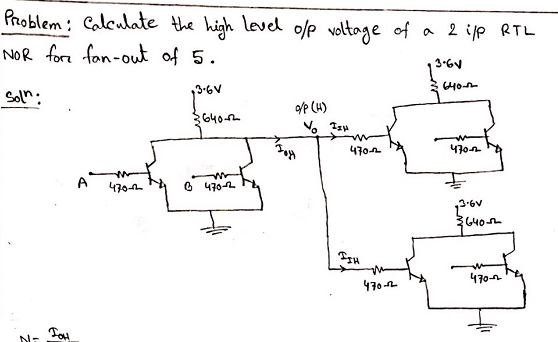 Problem: Calculate the high level o/p voltage of a 2 i/p RTL
NOR for fan-out of 5.
Solⁿ:
3.6V
640Ω
3.6V
640Ω
o/p (H)
V₀
I_IH
I_OH
470Ω
470Ω
A
470Ω
B
470Ω
3.6V
640Ω
I_IH
470Ω
470Ω
N = I_OH